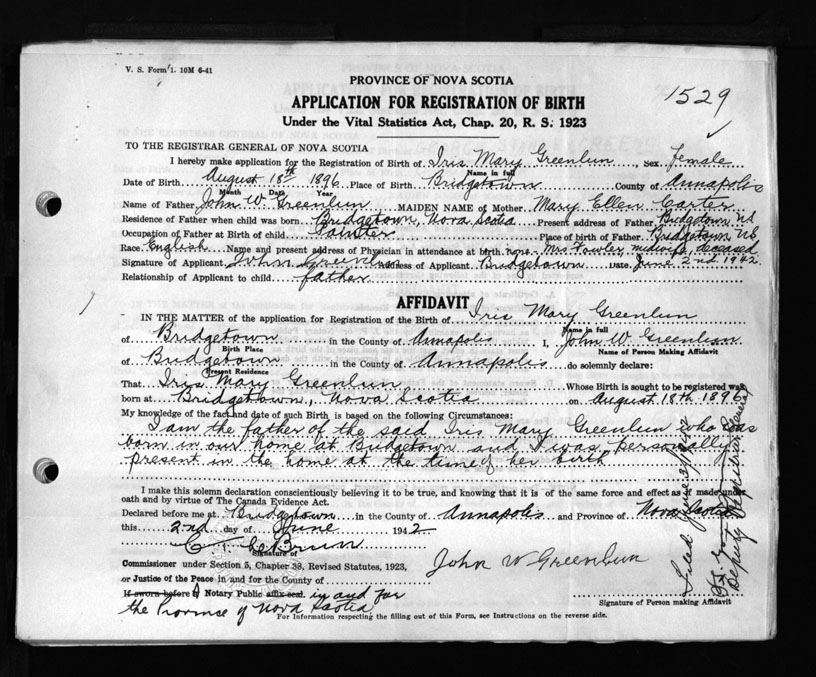 V. S. Form 1. 10M 6-41
PROVINCE OF NOVA SCOTIA
1529
APPLICATION FOR REGISTRATION OF BIRTH
Under the Vital Statistics Act, Chap. 20, R. S. 1923
TO THE REGISTRAR GENERAL OF NOVA SCOTIA
I hereby make application for the Registration of Birth of Iris Mary Greenlun, Sex Female
Name in full
Date of Birth August 18th 1896 Place of Birth Bridgetown County of Annapolis
Month Date Year
Name of Father John W Greenlun MAIDEN NAME of Mother Mary Ellen Carter
Residence of Father when child was born Bridgetown, Nova Scotia Present address of Father Bridgetown NS
Occupation of Father at Birth of child Painter Place of birth of Father Bridgetown NS
Race English Name and present address of Physician in attendance at birth none - Mrs Fowler, midwife, deceased
Signature of Applicant John Greenlun Address of Applicant Bridgetown Date June 2nd 1942.
Relationship of Applicant to child father
AFFIDAVIT
IN THE MATTER of the application for Registration of the Birth of Iris Mary Greenlun
Name in full
of Bridgetown in the County of Annapolis I, John W Greenlun
Birth Place Name of Person Making Affidavit
of Bridgetown in the County of Annapolis do solemnly declare:
Present Residence
That Iris Mary Greenlun Whose Birth is sought to be registered was
born at Bridgetown, Nova Scotia on August 18th 1896
My knowledge of the fact and date of such Birth is based on the following Circumstances:
I am the father of the said Iris Mary Greenlun who was
born in our home at Bridgetown and I was personally
present in the home at the time of her birth
I make this solemn declaration conscientiously believing it to be true, and knowing that it is of the same force and effect as if made under
oath and by virtue of The Canada Evidence Act.
Declared before me at Bridgetown in the County of Annapolis and Province of Nova Scotia
this 2nd day of June 1942
Signature of
Commissioner under Section 5, Chapter 38, Revised Statutes, 1923,
John W Greenlun
or Justice of the Peace in and for the County of
If sworn before A Notary Public affix seal. in and for
the Province of Nova Scotia
Signature of Person making Affidavit
For Information respecting the filling out of this Form, see Instructions on the reverse side.
Deputy Registrar General